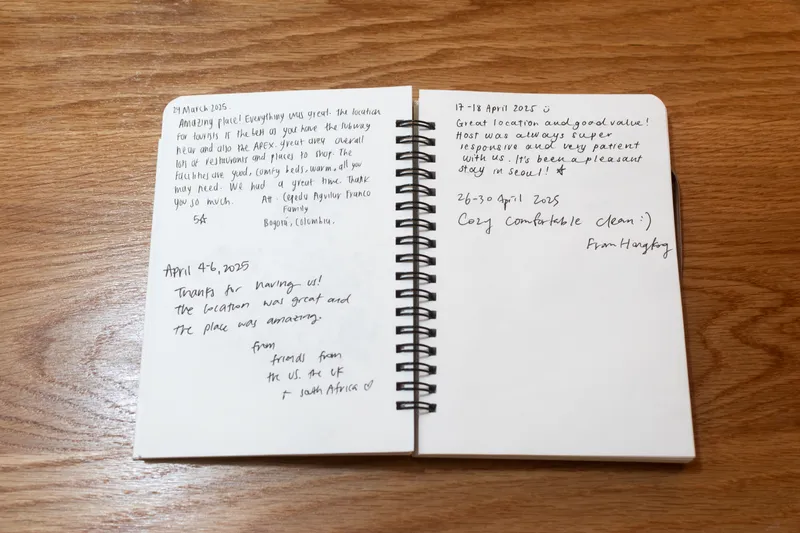 29 March 2025
Amazing place! Everything was great. The location
for tourists is the best as you have the subway
near and also the APEX. great area overall
lots of restaurants and places to shop. The
facilities are good, comfy beds, warm, all you
may need. We had a great time. Thank
you so much.
Att - Cepeda Aguilar Franco
Family
5☆
Bogotá, Colombia.
April 4-6, 2025
Thanks for having us!
the location was great and
the place was amazing.
from
friends from
the US, the UK
+ south Africa ♡
17-18 April 2025 ☺
Great location and good value!
Host was always super
responsive and very patient
with us. It's been a pleasant
stay in Seoul! ☆
26-30 April 2025
Cozy comfortable clean :)
From Hongkong